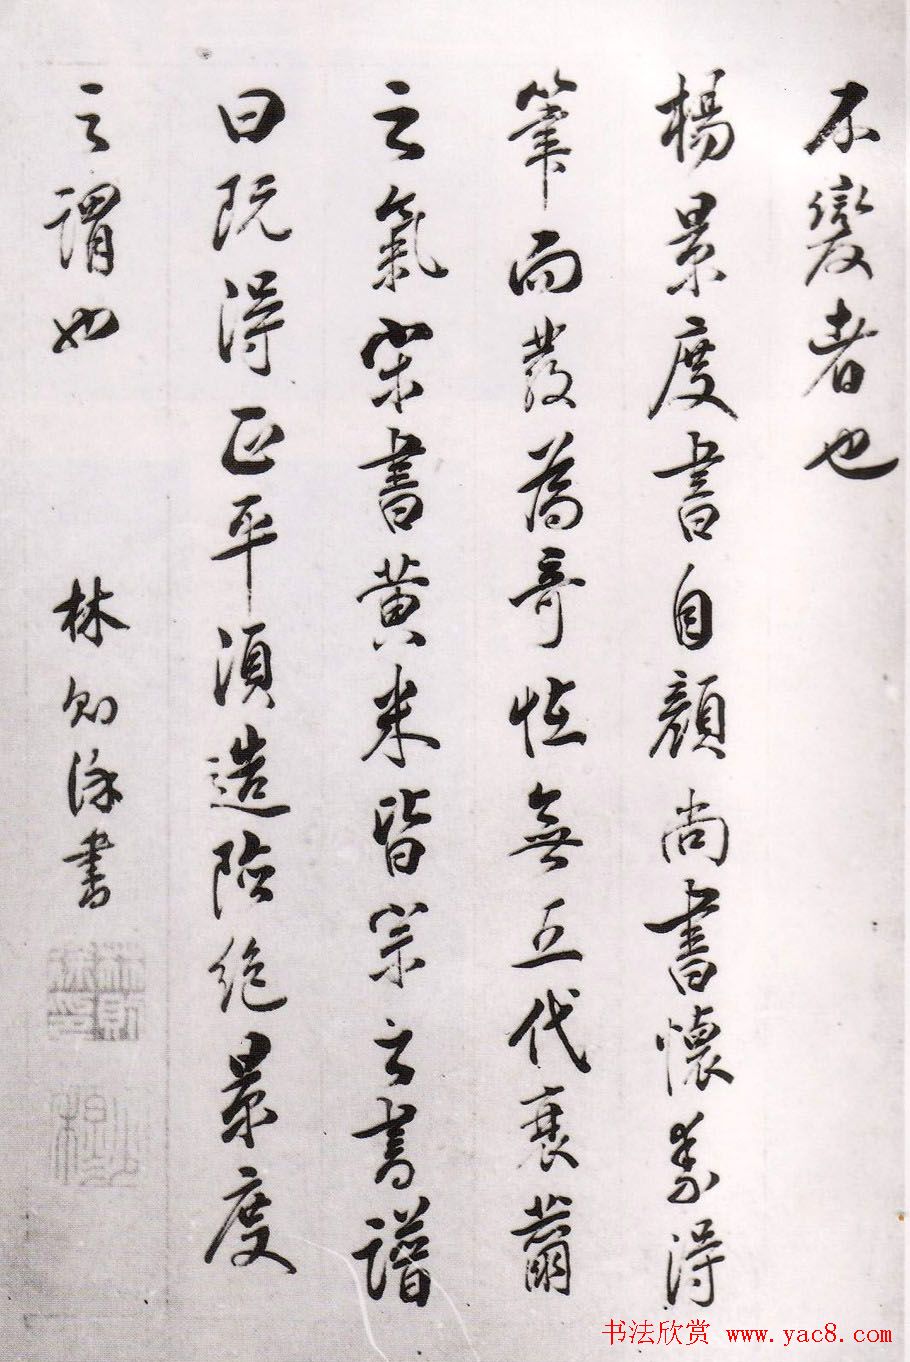 不變者也
楊景度書自顏尚書懷素得
筆而發為奇怪無五代衰薾
之氣宋書黄米皆宗之書譜
曰既得正平須造險絶景度
之謂也
林則徐書
書法欣赏 www.yac8.com